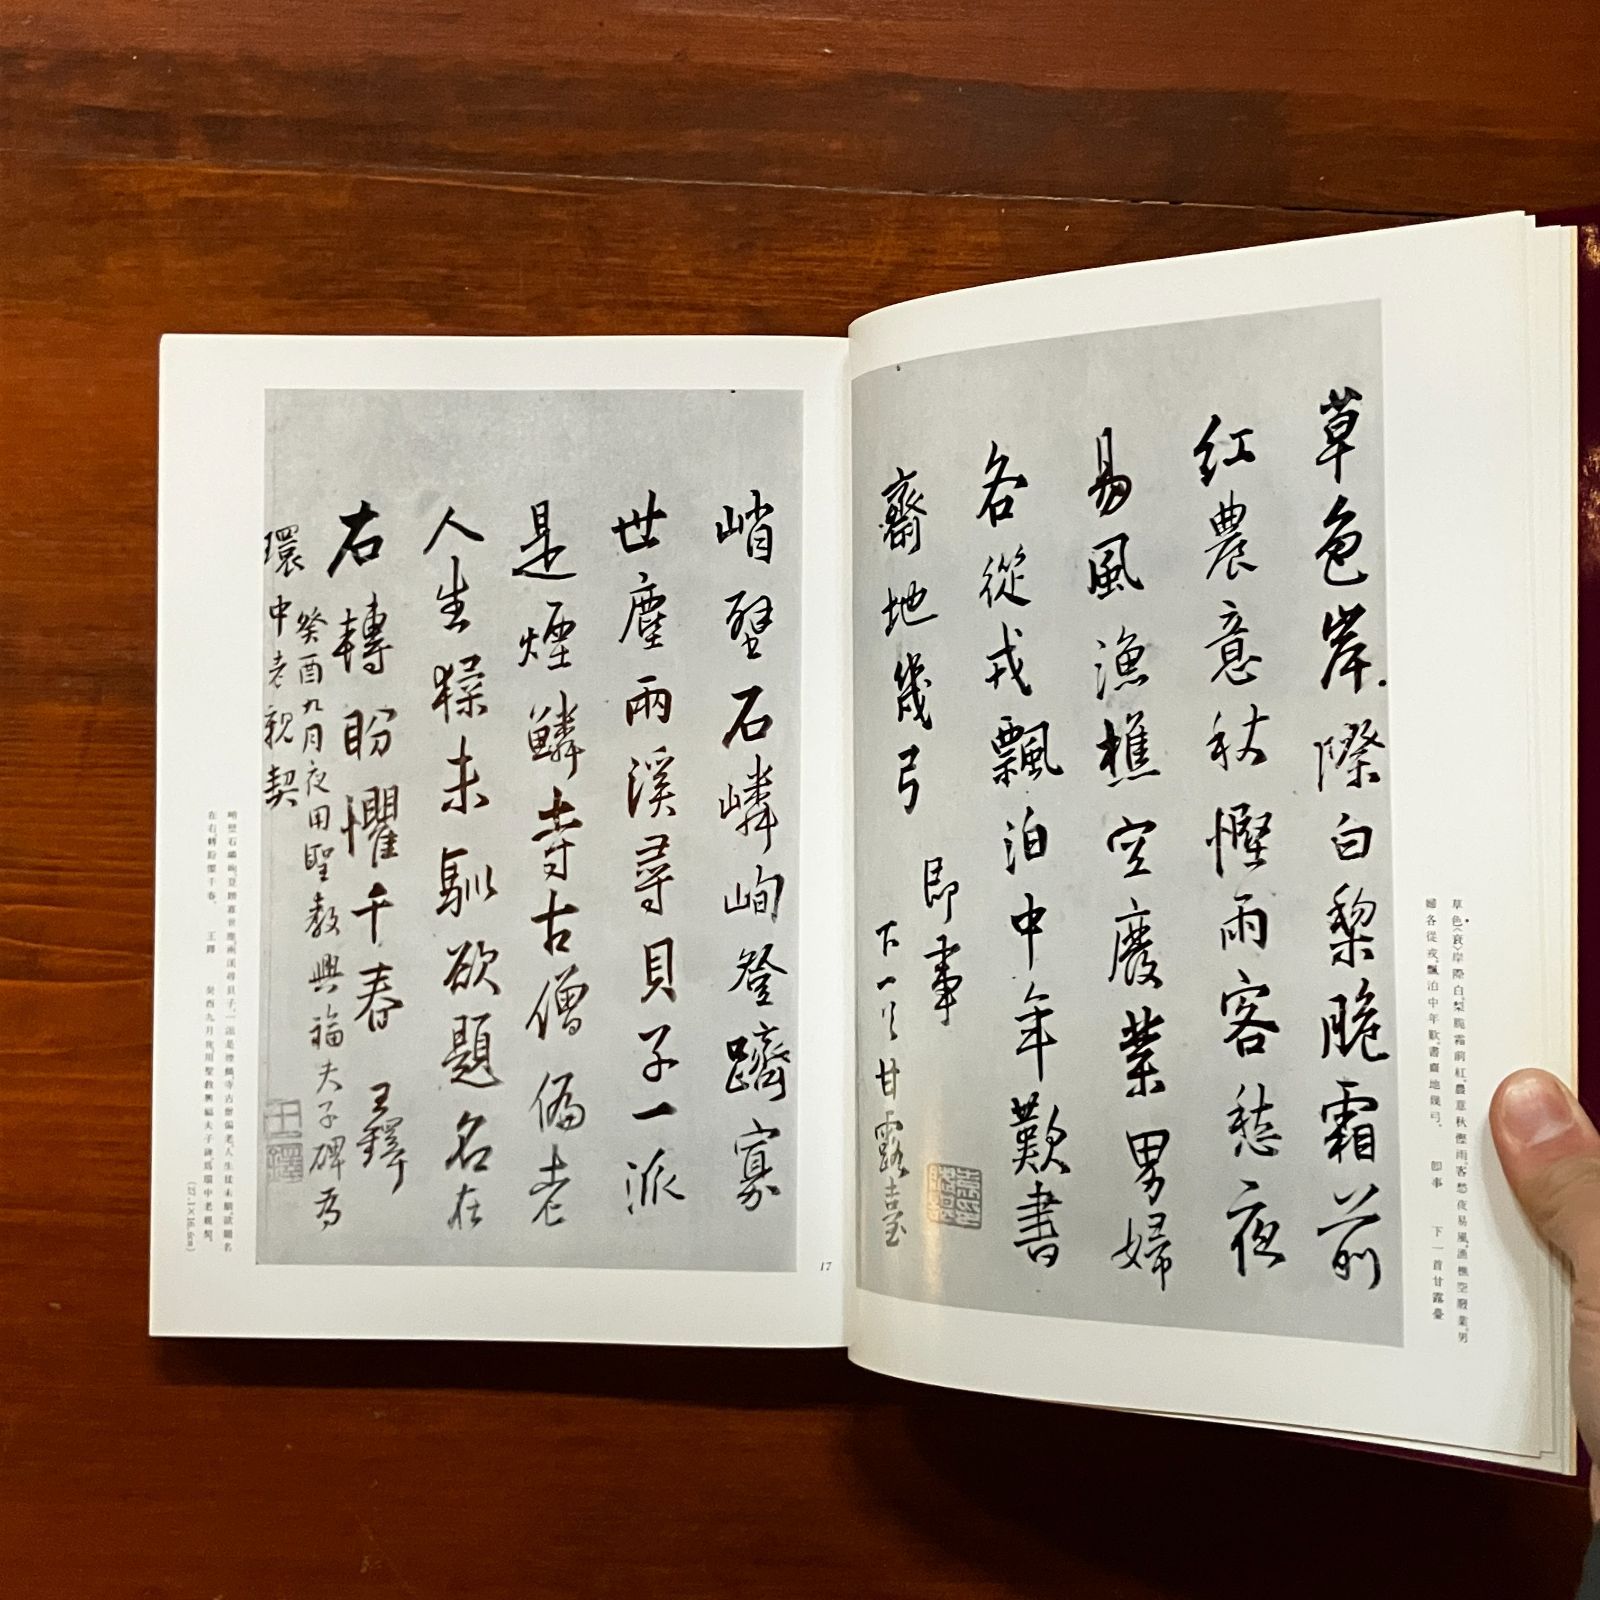 草色岸際白黎脆霜前
紅農意秋慳雨客愁夜
易風漁樵空廢業男婦
各從戎飄泊中年歎書
齋地幾弓　即事
下一首甘露臺
草色(衰)岸際白梨脆霜前紅農意秋慳雨客愁夜易風漁樵空廢業男
婦各從戎飄泊中年歎書齋地幾弓　即事　下一首甘露臺
峭壁石嶙峋登躋寡
世塵兩溪尋貝子一派
是煙鱗寺古僧偏老
人生猱未馴欲題名在
右轉盼懼千春　王鐸
癸酉九月夜用聖教興福夫子碑為
環中老親契
王鐸
峭壁石嶙峋登躋寡世塵兩溪尋貝子一派是煙鱗寺古僧偏老人生猱未馴欲題名
在右轉盼懼千春　王鐸　癸酉九月夜用聖教興福夫子碑爲環中老親契
17